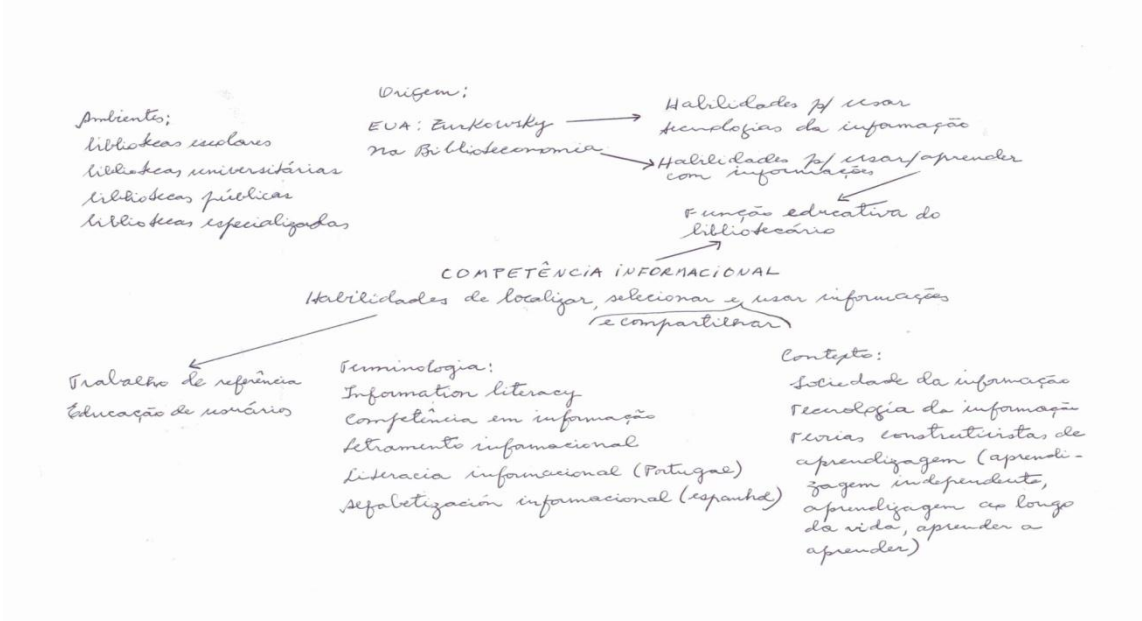 Ambientes:
bibliotecas escolares
bibliotecas universitárias
bibliotecas públicas
bibliotecas especializadas
Origem:
EUA: Zurkowsky
na Biblioteconomia
Habilidades p/ usar
tecnologias da informação
Habilidades p/ usar/aprender
com informações
Função educativa do
bibliotecário
COMPETÊNCIA INFORMACIONAL
Habilidades de localizar, selecionar e usar informações
(e compartilhar)
Trabalho de referência
Educação de usuários
Terminologia:
Information literacy
Competência em informação
Letramento informacional
Literacia informacional (Portugal)
Alfabetización informacional (espanhol)
Contexto:
Sociedade da informação
Tecnologia da informação
Teorias construtivistas de
aprendizagem (aprendi-
zagem independente,
aprendizagem ao longo
da vida, aprender a
aprender)